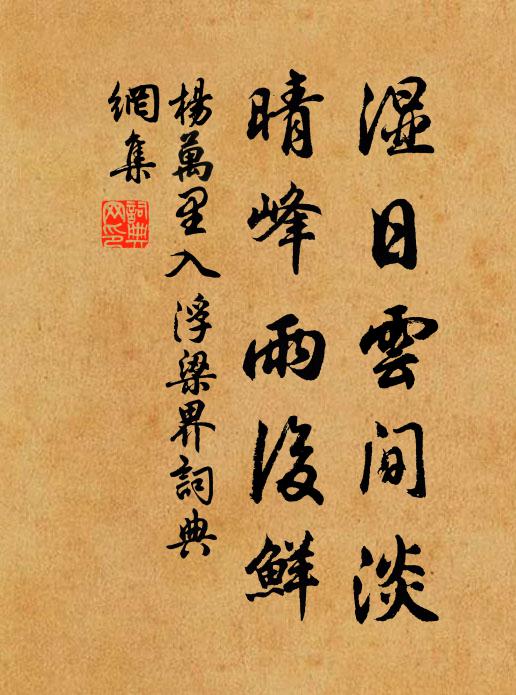 湿日雲間淡
晴峰雨後鮮
楊萬里入浮梁界詞典
網集
詞典
网印